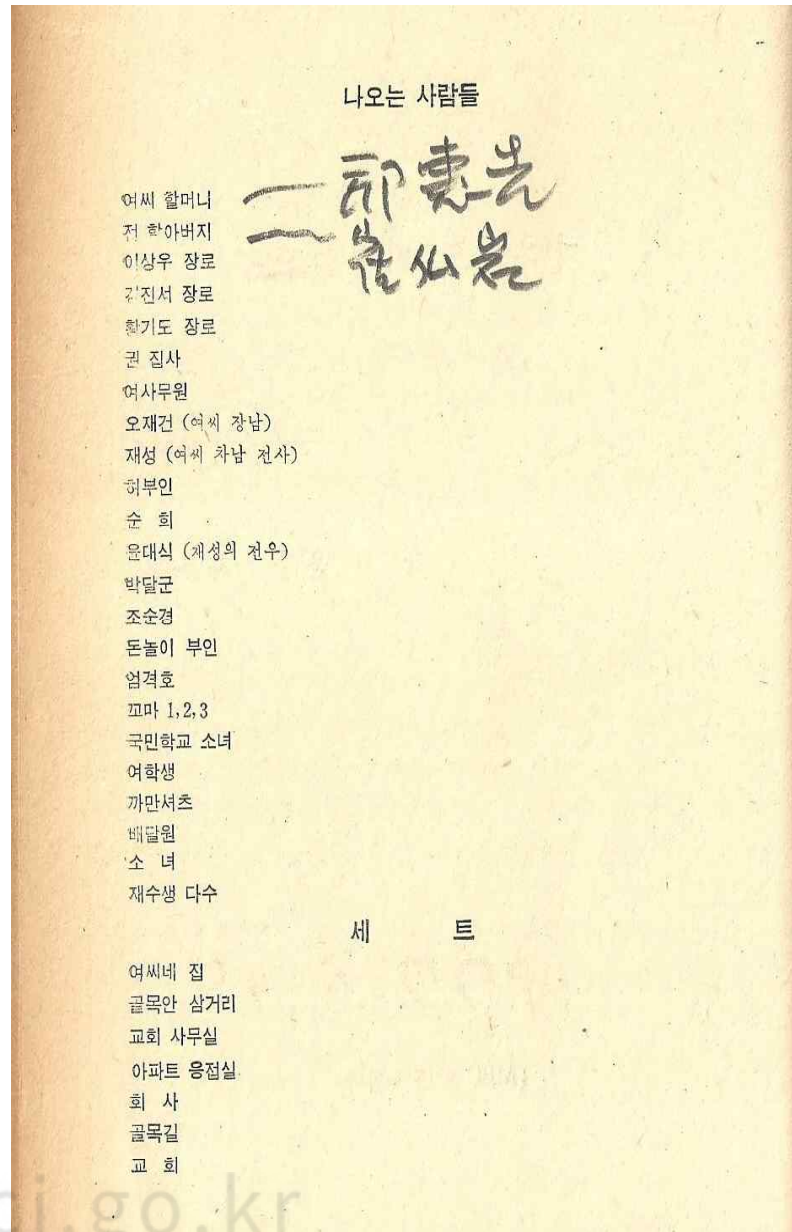 나오는 사람들
여씨 할머니
전 할아버지
이상우 장로
김진서 장로
황기도 장로
권 집사
여사무원
오재건 (여씨 장남)
재성 (여씨 차남 전사)
허부인
순 희
윤대식 (재성의 전우)
박달군
조순경
돈놀이 부인
엄격호
꼬마 1,2,3
국민학교 소녀
여학생
까만셔츠
배달원
소 녀
재수생 다수
세 트
여씨네 집
골목안 삼거리
교회 사무실
아파트 응접실
회 사
골목길
교 회
ci.go.kr